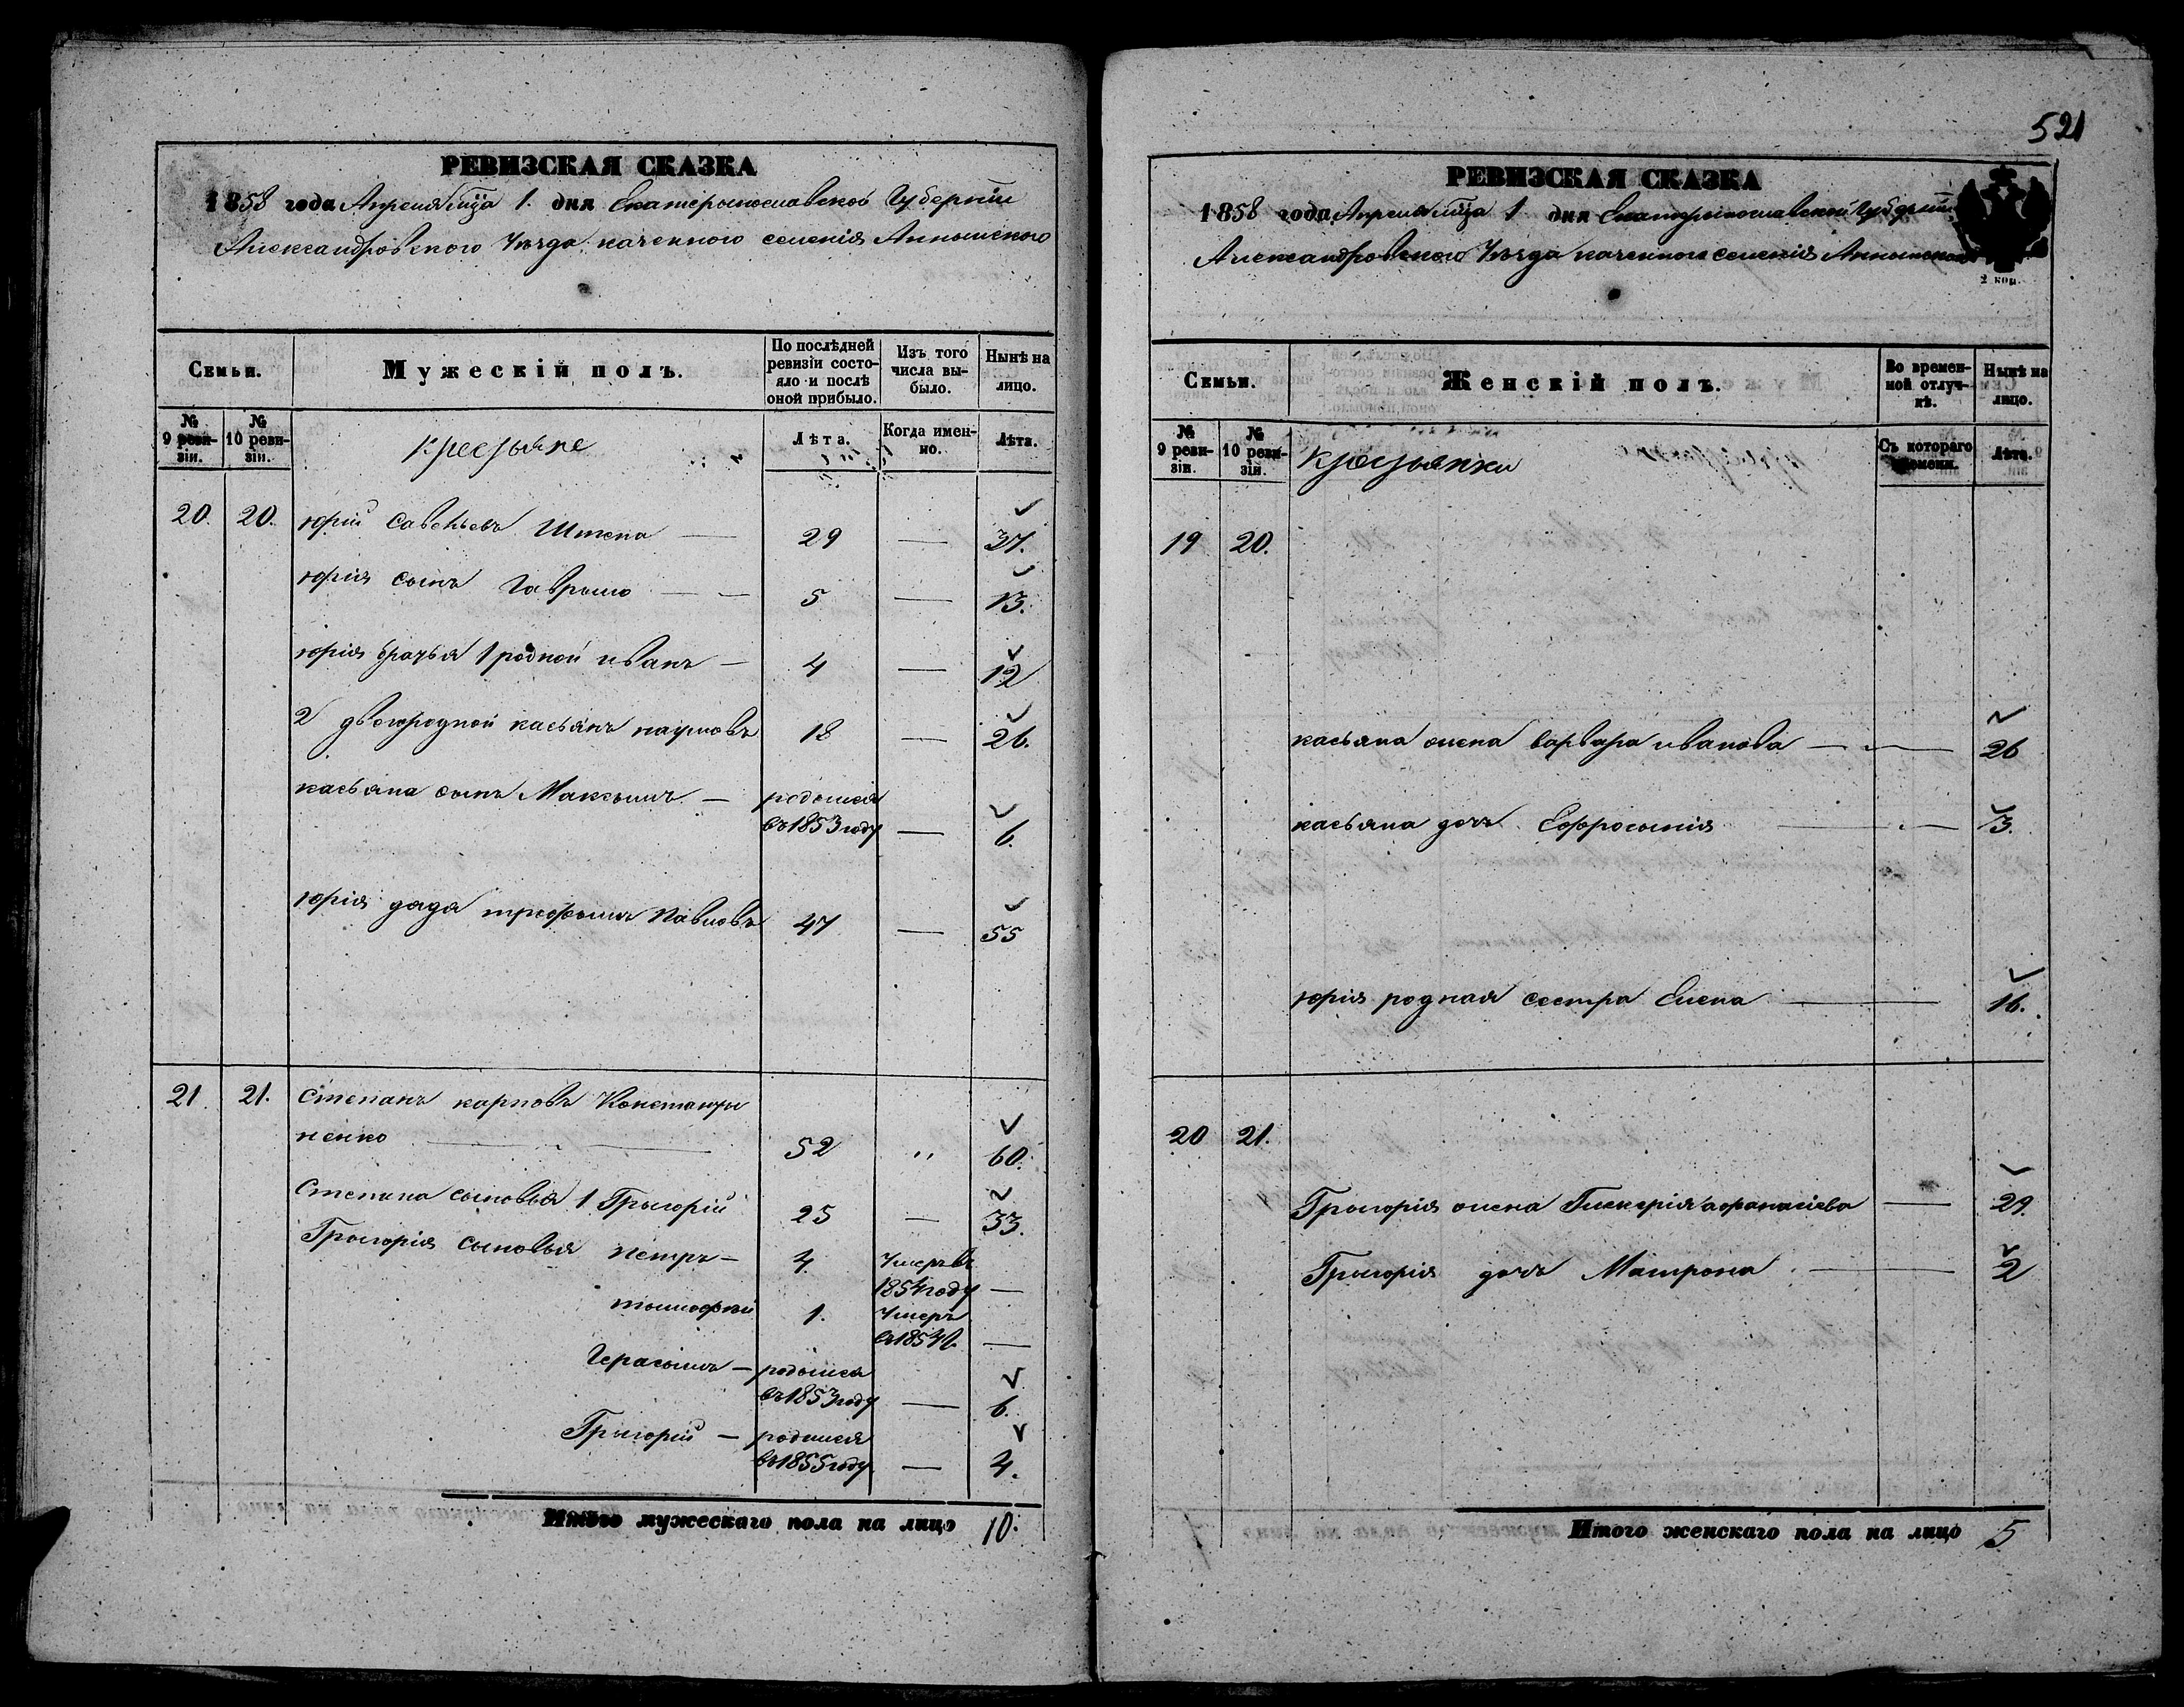 РЕВИЗСКАЯ СКАЗКА
1858 года Апреля мца 1. дня Екатерынославской Губернiи
Александровского Уезда казенного селенiя Аннынского
Семьи.
Мужескiй полъ.
По послѣдней ревизiи состояло и послѣ оной прибыло.
Изъ того числа выбыло.
Нынѣ на лицо.
№ 9 ревизiи.
№ 10 ревизiи.
крестьяне
Лѣта.
Когда именно.
Лѣта.
20. 20. юрiй Савельевъ Штепа — 29 — 37.
юрiя сынъ Гаврыло — — 5 — 13.
юрiя братья 1 родной иванъ — 4 — 12
2 двоюродной касьянъ наумовъ 18 — 26.
касьяна сынъ Максымъ — родылся
въ 1853 году — 6.
юрiя дядя трофымъ Павловъ 47 — 55
21. 21. Степанъ карповъ Константы
ненко — 52 „ 60.
Степана сыновья 1 Грыгорiй 25 — 33.
Грыгорiя сыновья петръ — 4. Умеръ въ
1854 году —
тымофей 1. Умеръ
въ 185
Герасымъ — родылся
въ 1853 году — 6.
Грыгорiй — родылся
въ 1855 году — 4.
Итого мужескаго пола на лицо 10.
521
РЕВИЗСКАЯ СКАЗКА
1858 года Апреля мца 1 дня Екатерынославской Губернiи
Александровского Уезда казенного селенiя Аннынского
2 коп.
Семьи.
Женскiй полъ.
Во временной отлучкѣ.
Нынѣ на лицо.
№ 9 ревизiи.
№ 10 ревизiи.
крестьянки
Съ котораго времени.
Лѣта.
19 20.
касьяна жена варвара иванова — — 26
касьяна дочь Ефросынiя — 3.
юрiя родная сестра Елена — 16.
20 21.
Грыгорiя жена Гликерiя афанасiева — 29.
Грыгорiя дочь Матрона — 2
Итого женскаго пола на лицо 5